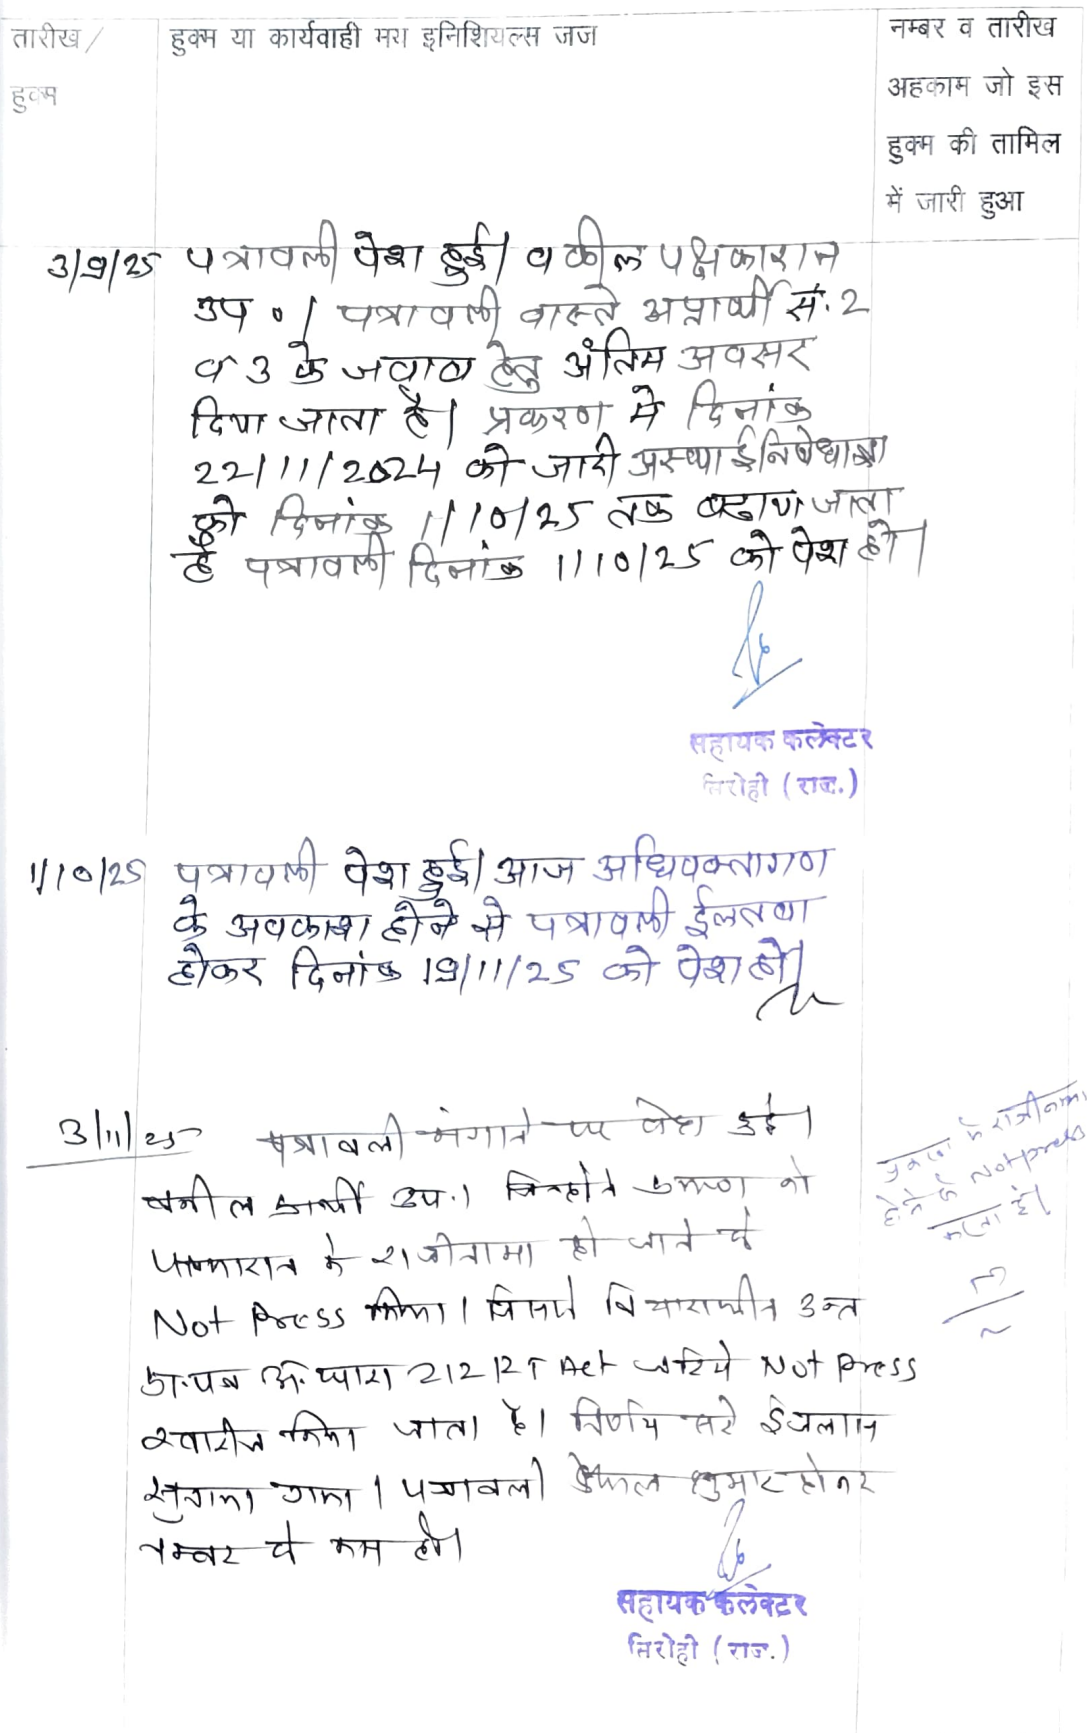 तारीख /
हुक्म
हुक्म या कार्यवाही मय इनिशियल्स जज
नम्बर व तारीख
अहकाम जो इस
हुक्म की तामिल
में जारी हुआ
3/9/25 पत्रावली पेश हुई। वकील पक्षकारान
उप०। पत्रावली वास्ते अप्रार्थी सं. 2
व 3 के जवाब हेतु अंतिम अवसर
दिया जाता है। प्रकरण मे दिनांक
22/11/2024 को जारी अस्थाई निषेधाज्ञा
को दिनांक 1/10/25 तक बढाया जाता
है पत्रावली दिनांक 1/10/25 को पेश हो।
सहायक कलेक्टर
सिरोही (राज.)
1/10/25 पत्रावली पेश हुई। आज अधिवक्तागण
के अवकाश होने से पत्रावली ईलतवा
होकर दिनांक 19/11/25 को पेश हो।
3/11/25 पत्रावली मंगाने पर पेश हुई।
वकील प्रार्थी उप.। जिन्होने प्रकरण को
पक्षकारान के राजीनामा हो जाने से
Not Press किया। जिससे विचाराधीन उक्त
प्रा.पत्र अ. धारा 212 RT Act जरिये Not Press
खारीज किया जाता है। निर्णय सरे ईजलास
सुनाया गया। पत्रावली फैसल शुमार होकर
नम्बर से कम हो।
में राजीनामा
होने से Not press
करता है।
सहायक कलेक्टर
सिरोही (राज.)